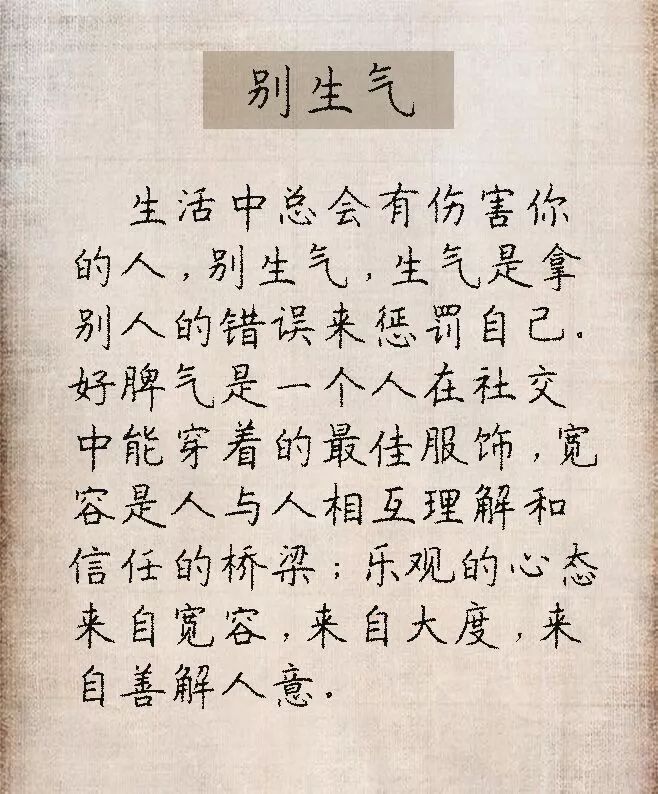 别生气
生活中总会有伤害你
的人，别生气，生气是拿
别人的错误来惩罚自己。
好脾气是一个人在社交
中能穿着的最佳服饰，宽
容是人与人相互理解和
信任的桥梁；乐观的心态
来自宽容，来自大度，来
自善解人意。